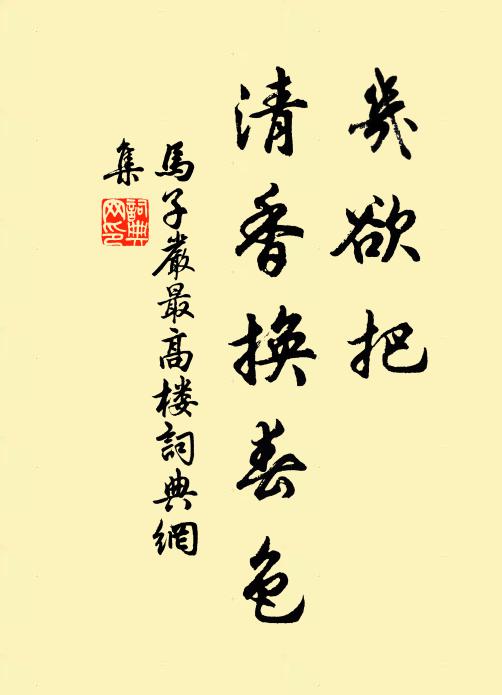 幾欲把
清香換春色
馬子嚴最高楼詞典網
集
詞典
网印